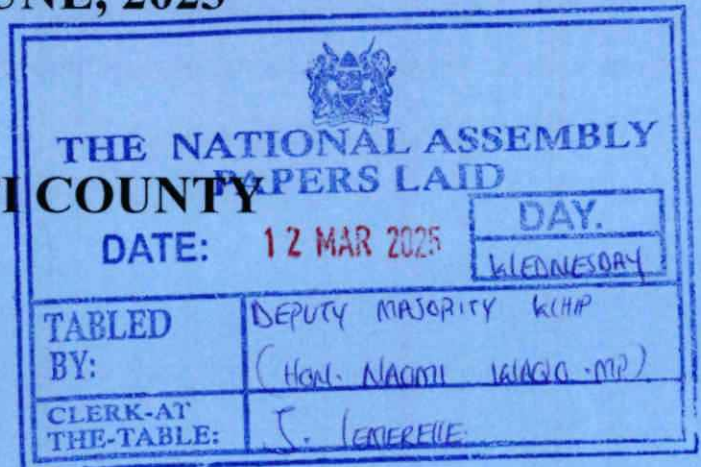 UNE, 2023
THE NATIONAL ASSEMBLY
PAPERS LAID
I COUNTY
DATE: 12 MAR 2025
DAY.
WEDNESDAY
TABLED BY:
DEPUTY MAJORITY WHIP
(HON. NAOMI WAQO - MP)
CLERK-AT THE-TABLE:
J. LEMERELLE